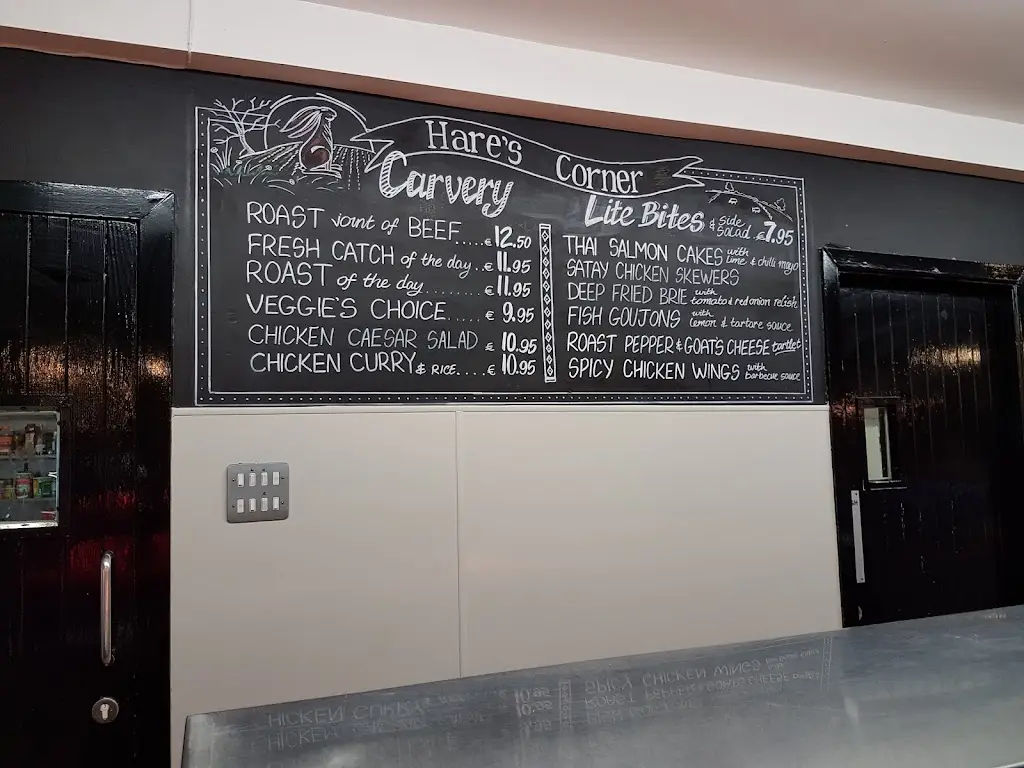 Hare's Corner
Carvery
ROAST joint of BEEF.....€12.50
FRESH CATCH of the day..€11.95
ROAST of the day.........€11.95
VEGGIE'S CHOICE.....€ 9.95
CHICKEN CAESAR SALAD € 10.95
CHICKEN CURRY & RICE....€ 10.95
Lite Bites & Side Salad..€7.95
THAI SALMON CAKES with lime & chilli mayo
SATAY CHICKEN SKEWERS
DEEP FRIED BRIE with tomato & red onion relish
FISH GOUJONS with lemon & tartare sauce
ROAST PEPPER & GOATS CHEESE tartlet
SPICY CHICKEN WINGS with barbecue sauce